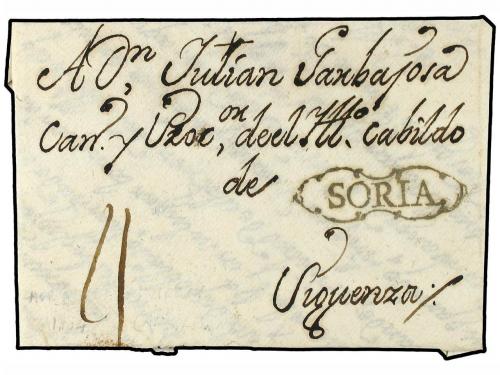 A Dn, Julian Garbajosa
Can.º y Proc.on, de el Ill.º Cabildo
de SORIA
Siguenza